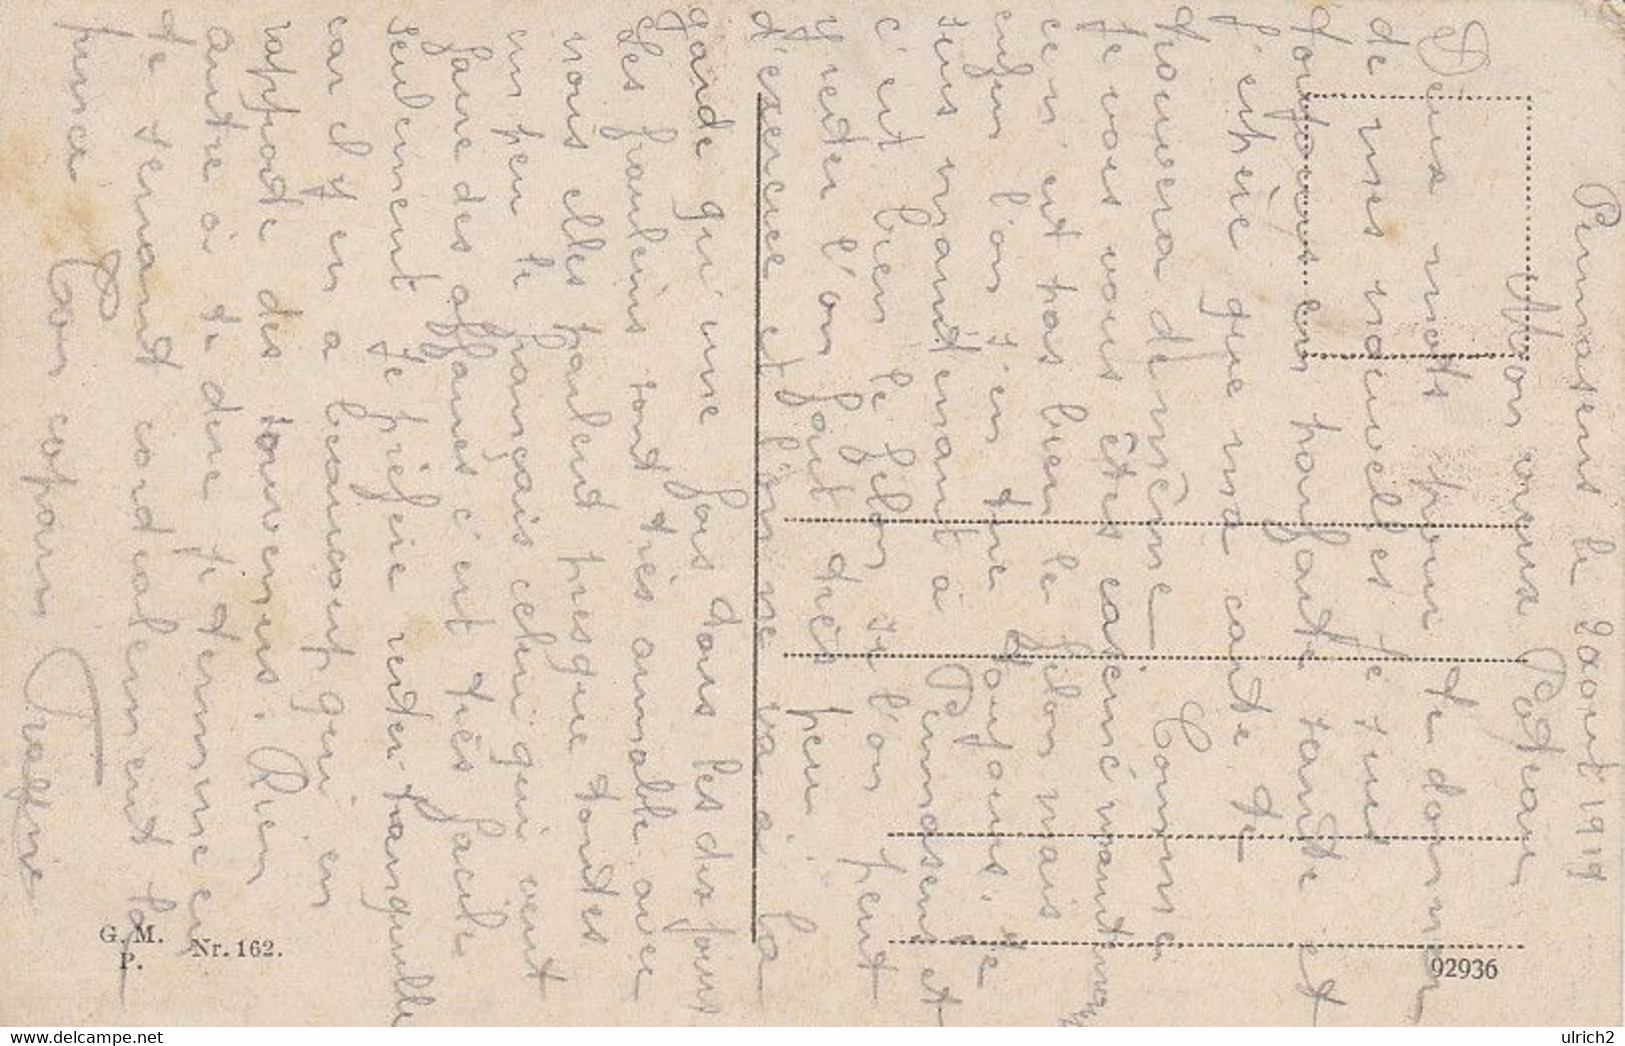 Pirmasens le 2 aout 1919
Mon vieux Poteau
Deux mots pour te donner
de mes nouvelles je suis
toujours en parfaite santé et
j'espère que ma carte te
trouvera de même. Comme
je vois vous êtes caserné maintenant
ce n'est pas bien le filon mais
enfin l'on s'en tire toujours. Je
suis maintenant à Pirmasens et
c'est bien le filon si l'on peut
y rester l'on fait très peu
d'exercice et l'on ne va à la
garde qu'une fois tous les dix jours
Les frauleins sont très aimable avec
nous elles parlent presque toutes
un peu le français celui qui veut
faire des affaires c'est très facile
seulement je préfère rester tranquille
car il y en a beaucoup qui en
rapporte des souvenirs. Rien
autre à te dire je termine en
te serrant cordialement la
pince Ton copain
G. M.
P.
Nr. 162.
92936
ulrich2